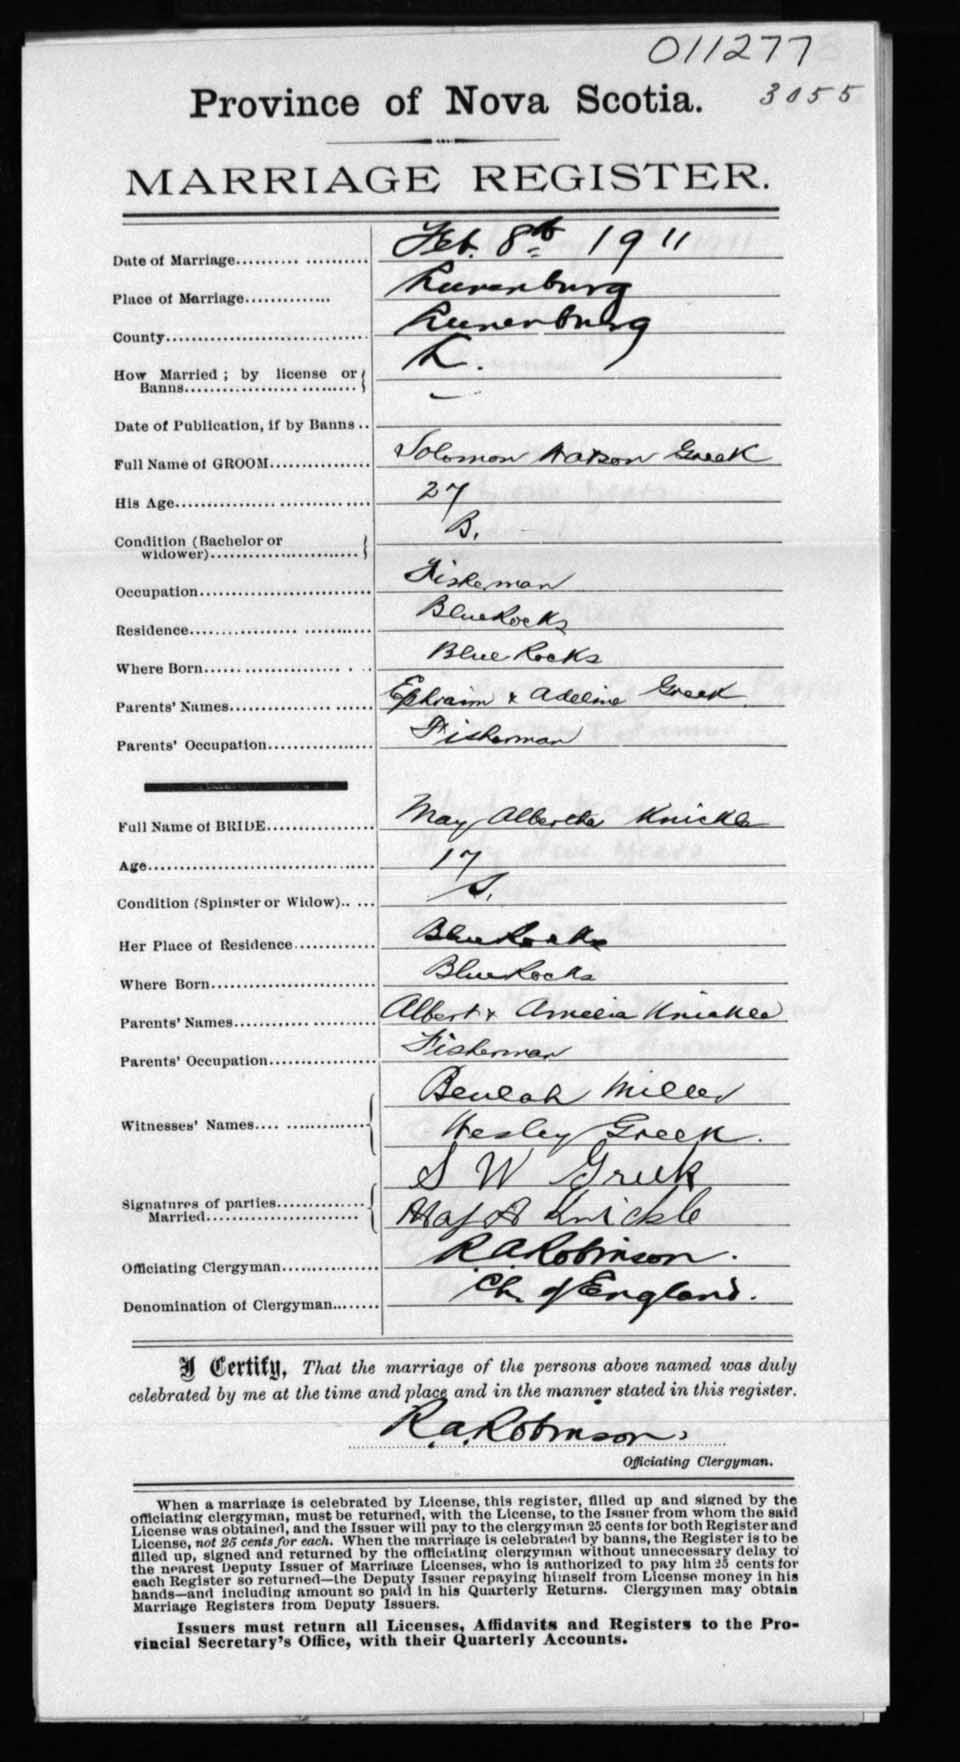 011277
Province of Nova Scotia.
3055
MARRIAGE REGISTER.
Date of Marriage.......... Feb. 8th 1911
Place of Marriage.............. Lunenburg
County.............................. Lunenburg
How Married; by license or L.
Banns........................... —
Date of Publication, if by Banns..
Full Name of GROOM................ Solomon Watson Greek
His Age.............................. 27
Condition (Bachelor or B.
widower)........................
Occupation............................ Fisherman
Residence............................. Blue Rocks
Where Born........................ Blue Rocks
Parents' Names...................... Ephraim & Adeline Greek
Parents' Occupation................. Fisherman
Full Name of BRIDE................. May Albertha Knickle
Age..................................... 17
Condition (Spinster or Widow)..... S.
Her Place of Residence............. Blue Rocks
Where Born........................... Blue Rocks
Parents' Names...................... Albert & Amelia Knickle
Parents' Occupation.................. Fisherman
Beulah Miller
Witnesses' Names...................
Wesley Greek.
S W Greek
Signatures of parties..............
Married........................ May A Knickle
Officiating Clergyman................ R. A. Robinson.
Denomination of Clergyman........ Ch. of England.
I Certify, That the marriage of the persons above named was duly
celebrated by me at the time and place and in the manner stated in this register.
R. A. Robinson.
Officiating Clergyman.
When a marriage is celebrated by License, this register, filled up and signed by the
officiating clergyman, must be returned, with the License, to the Issuer from whom the said
License was obtained, and the Issuer will pay to the clergyman 25 cents for both Register and
License, not 25 cents for each. When the marriage is celebrated by banns, the Register is to be
filled up, signed and returned by the officiating clergyman without unnecessary delay to
the nearest Deputy Issuer of Marriage Licenses, who is authorized to pay him 25 cents for
each Register so returned—the Deputy Issuer repaying himself from License money in his
hands—and including amount so paid in his Quarterly Returns. Clergymen may obtain
Marriage Registers from Deputy Issuers.
Issuers must return all Licenses, Affidavits and Registers to the Pro-
vincial Secretary's Office, with their Quarterly Accounts.